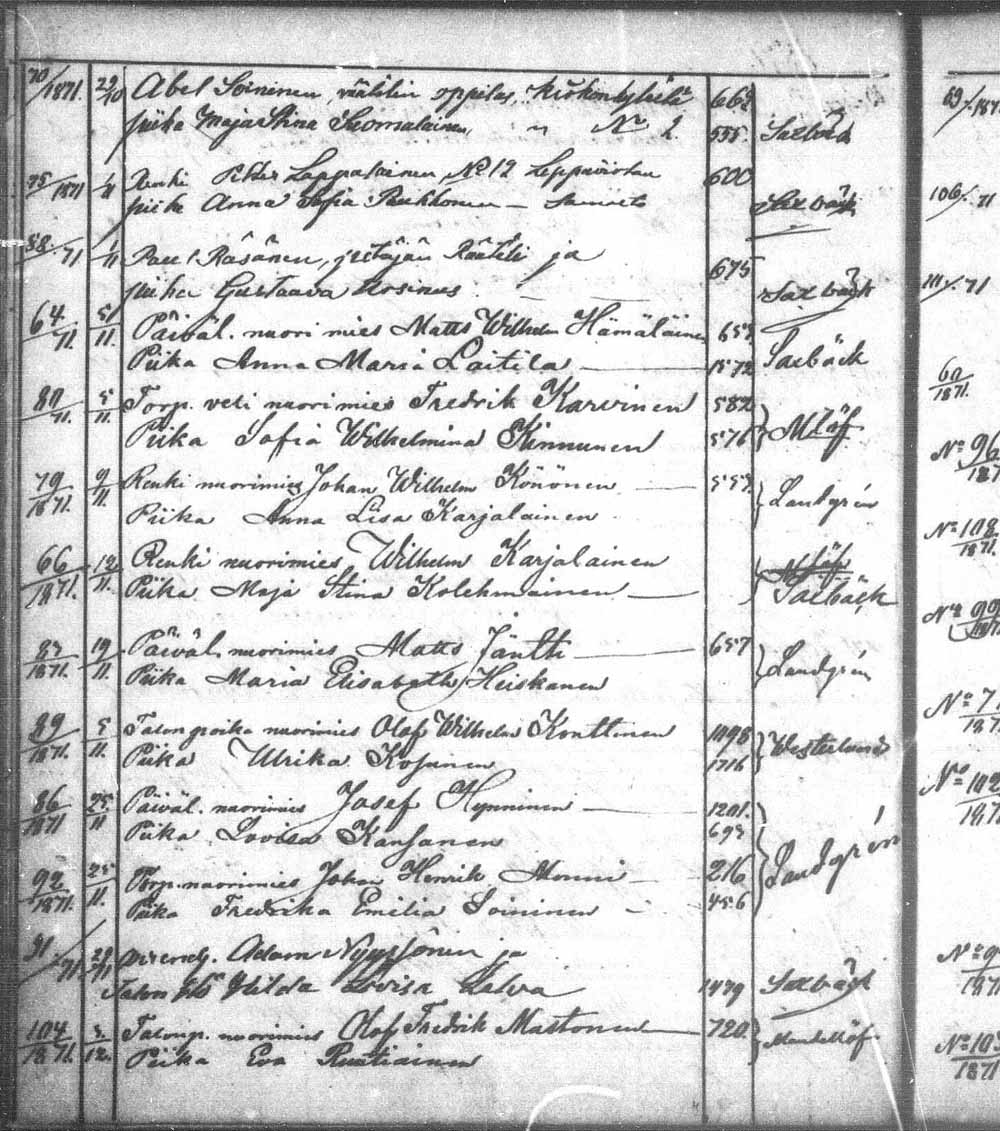 70/1871. 29/10 Abel Soininen, räätilin oppilas, Kirkonkylästä 662
piika Maja Stina Suomalainen, " No 2. 555. Saxbäck
75/1871 1/11 Renki Petter Lappalainen No 12 Leppävirran 600
piika Anna Sofia Saxbäck
88/71 1/11 Paul Räsänen, Räätäli ja 675
piika Gustaava Rosinus Saxbäck
64/71. 5/11. Päiväl. nuorimies Matts Wilhelm Hämäläinen 657
Piika Anna Maria Laitila 1572 Saxbäck
80/71. 5/11. Torp. veli nuorimies Fredrik Karvinen 582
Piika Sofia Wilhelmina Kinnunen 576 MLöf
79/1871. 9/11. Renki nuorimies Johan Wilhelm Könönen 557
Piika Anna Lisa Karjalainen Landgrén
66/1871. 12/11. Renki nuorimies Wilhelm Karjalainen
Piika Maja Stina Kolehmainen Saxbäck
1871. 19/11. Päiväl. nuorimies Matts Jäntti 657
Piika Maria Elisabeth Heiskanen Landgrén
89/1871. 5/11. Talonpoika nuorimies Olof Wilhelm Konttinen 1498
Piika Ulrika Kosunen 1716 Westerlund
86/1871 25/11 Päiväl. nuorimies Josef Hynninen 1201.
Piika Lovisa Kansanen 693
92/1871. 25/11. Torp. nuorimies Johan Henrik Monni 216 Landgrén
Piika Fredrika Emilia Soininen 456
91/71 29/11 Adam Nyyssönen ja
Hilda Lovisa Selva 1479 Saxbäck
104/1871. 3/12. Talonp. nuorimies Olof Fredrik Mustonen 720. Mandellöf
Piika Eva Rautiainen
69/187
106/71
111/71
60/1871.
No 96
187
No 108
1871.
No 90
1871
No 7
187
No 102
1871
No 9
1871
No 10
1871